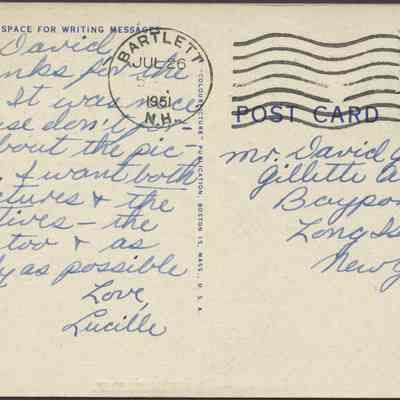 SPACE FOR WRITING MESSAGES
David
nks for the
It was nice
se don't
bout the pic-
I want both
ctures & the
tives – the
too & as
y as possible
Love,
Lucille
BARTLETT
JUL 26
1951
N.H.
"COLOURPICTURE" PUBLICATION, BOSTON 15, MASS., U.S.A.
POST CARD
Mr. David
Gillette A
Baypor
Long Is
New Y